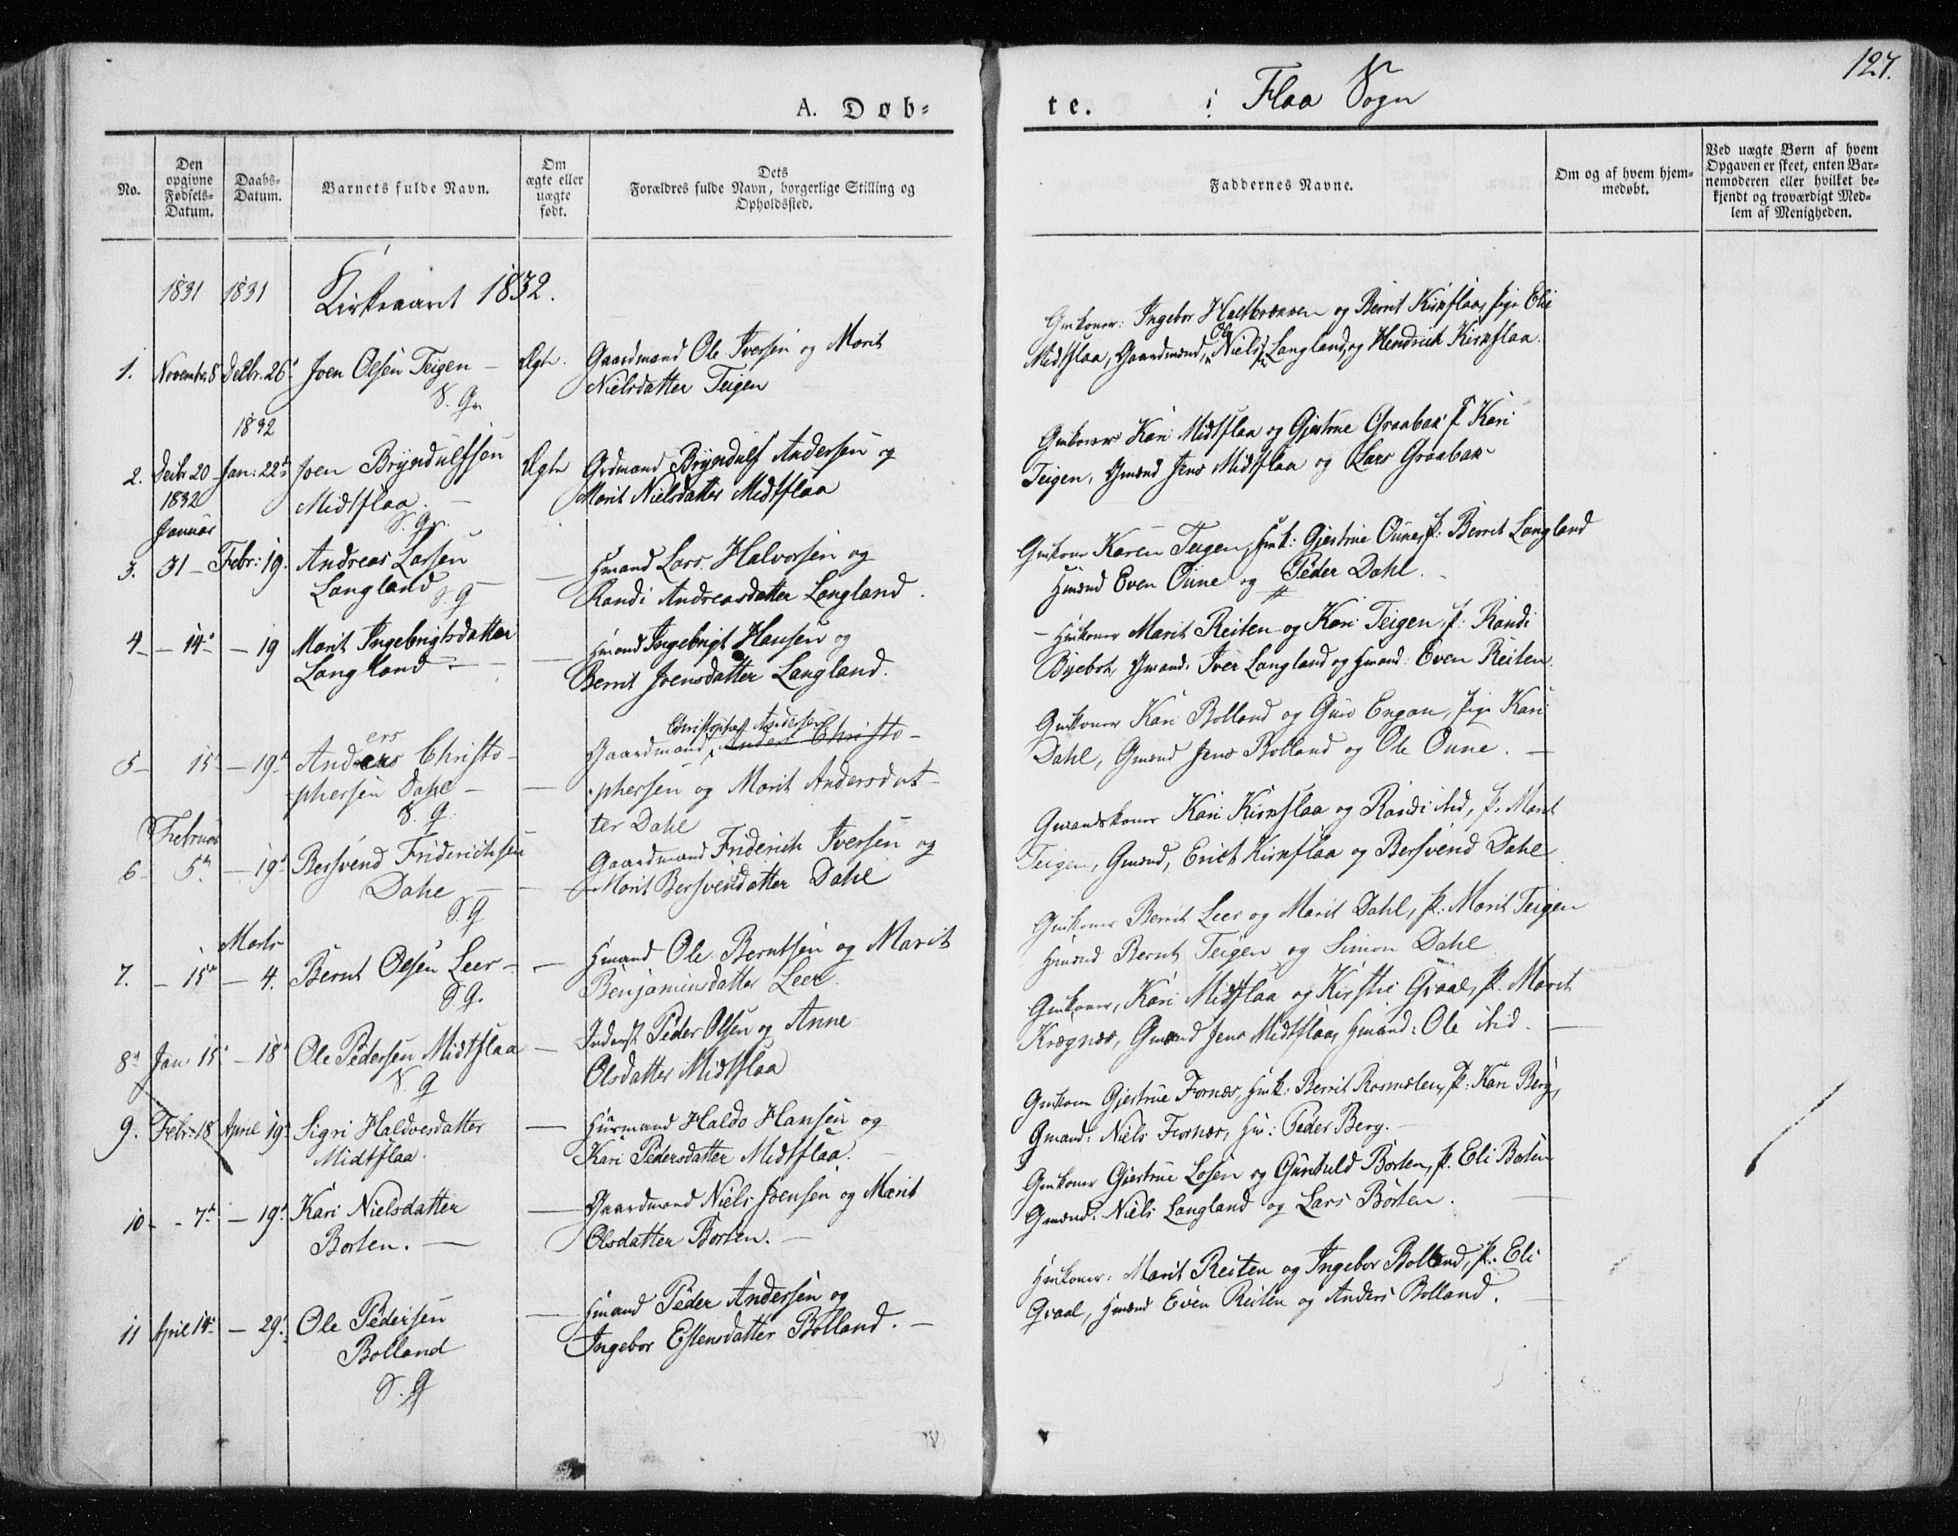 127.
A. Døb-
te. i Flaa Sogn
No.
Den
opgivne
Fødsels-
Datum.
Daabs-
Datum.
Barnets fulde Navn.
Om
ægte eller
uægte
født.
Dets
Forældres fulde Navn, borgerlige Stilling og
Opholdssted.
Faddernes Navne.
Om og af hvem hjem-
medøbt.
Ved uægte Børn af hvem
Opgaven er skeet, enten Bar-
nemoderen eller hvilket be-
kjendt og troværdigt Med-
lem af Menigheden.
1831 1831 Kirkeaaret 1832.
1. Novemb. 8 Decbr. 26 Joen Olsen Teigen – Ægte. Gaardmand Ole Iversen og Marit
Nielsdatter Teigen
Gmkoner: Ingebor Haltbrækken og Berrit Kirkflaa, Pige Eli
Midtflaa, Gaardmænd, Ole Nielsen Langland og Hendrich Kirkflaa.
S. G.
1832
2. Decbr 20 Jan: 22 Joen Bryndulfsen Ægte Grdmand Bryndulf Andersen og
Midtflaa. – Marit Nielsdatter Midtflaa
S. G.
Gmkoner Kari Midtflaa og Gjertrue Graabak P Kari
Teigen, Gmænd Jens Midtflaa og Lars Graabak
1832
Januar
3. 31 – Febr: 19. Andreas Larsen – Hmand Lars Halvorsen og
Langland – Randi Andreasdatter Langland.
S. G
Gmkone Karen Teigen, Hmk: Gjertrue Oune, P: Berrit Langland
Hmænd Even Oune og Peder Dahl.
4 – 14 – 19 Marit Ingebrigtsdatter – Hmand Ingebrigt Hansen og
Langland. – Berrit Joensdatter Langland.
– Hmkoner Marit Reiten og Kari Teigen, P: Randi
Gmand: Iver Langland og Hmand: Even Reiten
5 – 15 – 19 Anders Christo- Christopher Andersen
Gaardmand Anders Christo-
phersen Dahl – – phersen og Marit Andersdat-
S. G. ter Dahl
Gmkoner Kari Bolland og Engan, Pige Kari
Dahl, Gmænd Jens Bolland og Ole Oune. –
Februar
6 – 5 – 19 Bersvend Friderichsen Gaardmand Friderich Iversen og
Dahl – – Marit Bersvendatter Dahl
S. G
Gmandskoner Kari Kirkflaa og Randi ibid, P. Marit
Teigen, Gmænd, Erich Kirkflaa og Bersvend Dahl
Marts
7. – 15 – 4. Bernt Olsen Leer – – Hmand Ole Berntsen og Marit
Benjaminsdatter Leer.
S. G.
Gmkoner Berrit Leer og Marit Dahl, P. Marit Teigen
Hmænd Bernt Teigen og Simon Dahl
8 Jan 15 – 18 Ole Pedersen Midtflaa – Inderst Peder Olsen og Anne
Olsdatter Midtflaa
S. G
Gmkoner, Kari Midtflaa og Kirstie Graal, P. Marit
Krognæs, Gmænd Jens Midtflaa, Hmand: Ole ibid. –
9. Febr. 18 April 19 Sigri Haldosdatter – Huusmand Haldo Hansen og
Midtflaa. Kari Pedersdatter Midtflaa. –
Gmkone Gjertrue Fornæs, Hmk: Berrit Rosmælen, P: Kari Berg,
Gmand: Niels Fornæs, Hm: Peder Berg. –
10 – – 7 – 19 Kari Nielsdatter – Gaardmand Niels Joensen og Marit
Borten. – Olsdatter Borten. –
Gmkoner Gjertrue Losen og Gunhild Borten, P. Eli Borten
Gmænd: Niels Langland og Lars Borten.
11 April 14 – 29. Ole Pedersen – Hmand Peder Andersen og
Bolland Ingebor Estensdatter Bolland. –
S. G
Hmkoner: Marit Reiten og Ingebor Bolland, P.: Eli
Graal, Hmænd Even Reiten og Anders Bolland.